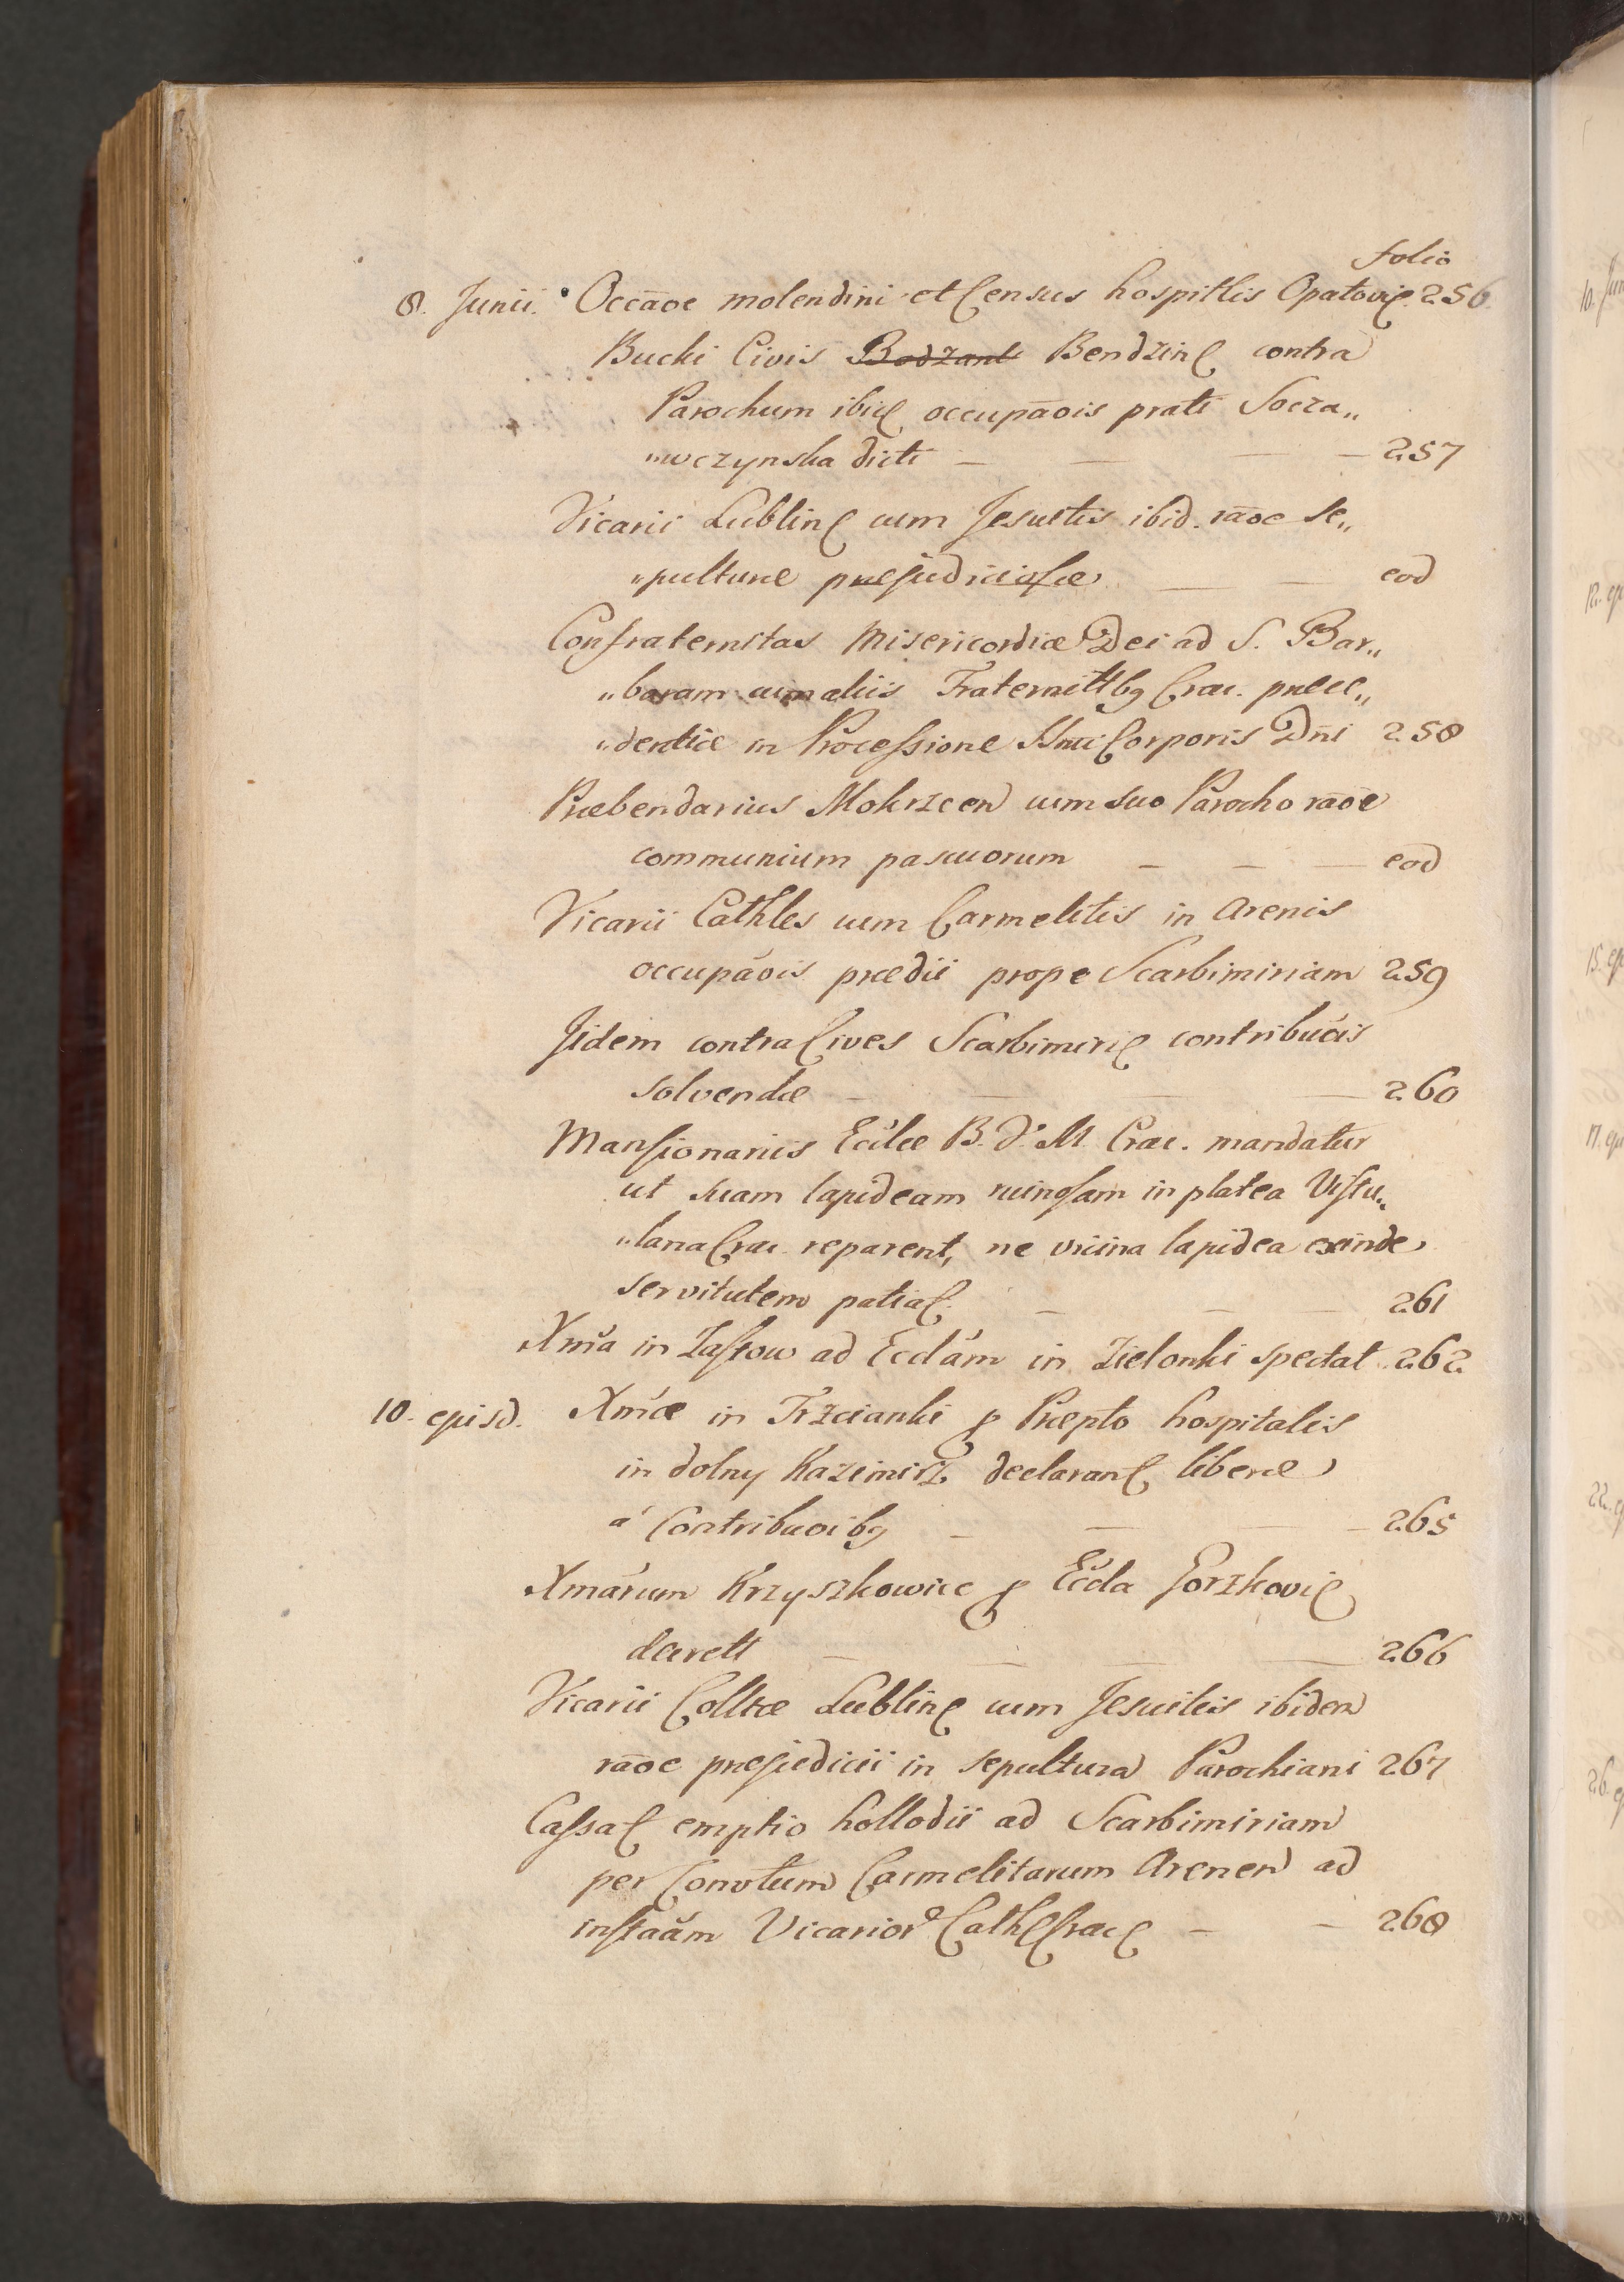 folio
8. Junii. Occãoe molendini et Census hospitlis Opatovię. 256.
Bucki Civis Bodzant Bendzinę contra
Parochum ibię occupãois prati Socza„
„wczynska dicti — — — 257
Vicarii Lublinę cum Jesuitis ibid. rãoe se„
„pulturæ præjudiciosæ — — eod
Confraternitas Misericordiæ Dei ad S. Bar„
„baram cum aliis Fraternittbq Crac. præce„
„dentiæ in Processione Ssmi Corporis Dñi 258
Præbendarius Mokrzcen cum suo Parocho rãoe
communium pascuorum — — — eod
Vicarii Cathles cum Carmelitis in Arenis
occupãois prædii prope Scarbimiriam 259
Jidem contra Cives Scarbimirię contribuõis
solvendæ — — — — 260
Mansionariis Ecclæ B. V. M. Crac. mandatur
ut suam lapideam ruinosam in platea Vistu„
„lana Crac. reparent, ne vicina lapidea exinde
servitutem patiaę. — — — 261
Xma in Zastow ad Ecclãm in Zielonki spectat 262
10. ejusd. Xmæ in Trzcianki p Præpto hospitalis
in dolny Kazimirz declaranę liberæ
a Contribuoibq — — — 265
Xmarum Krzyszkowice p Eccla Gorzkovię
decrett — — — — 266
Vicarii Colltæ Lublinę cum Jesuitis ibidem
rãoe præjudicii in sepultura Parochiani 267
Cassaę emptio hollodii ad Scarbimiriam
per Convtum Carmelitarum Arenen ad
instaãm Vicarior Cathę Cracę — — 268